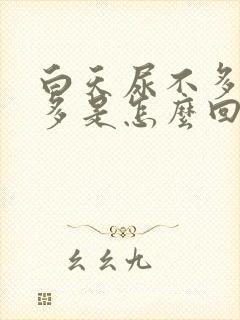 白天尿不多
多是怎麼回
幺幺九